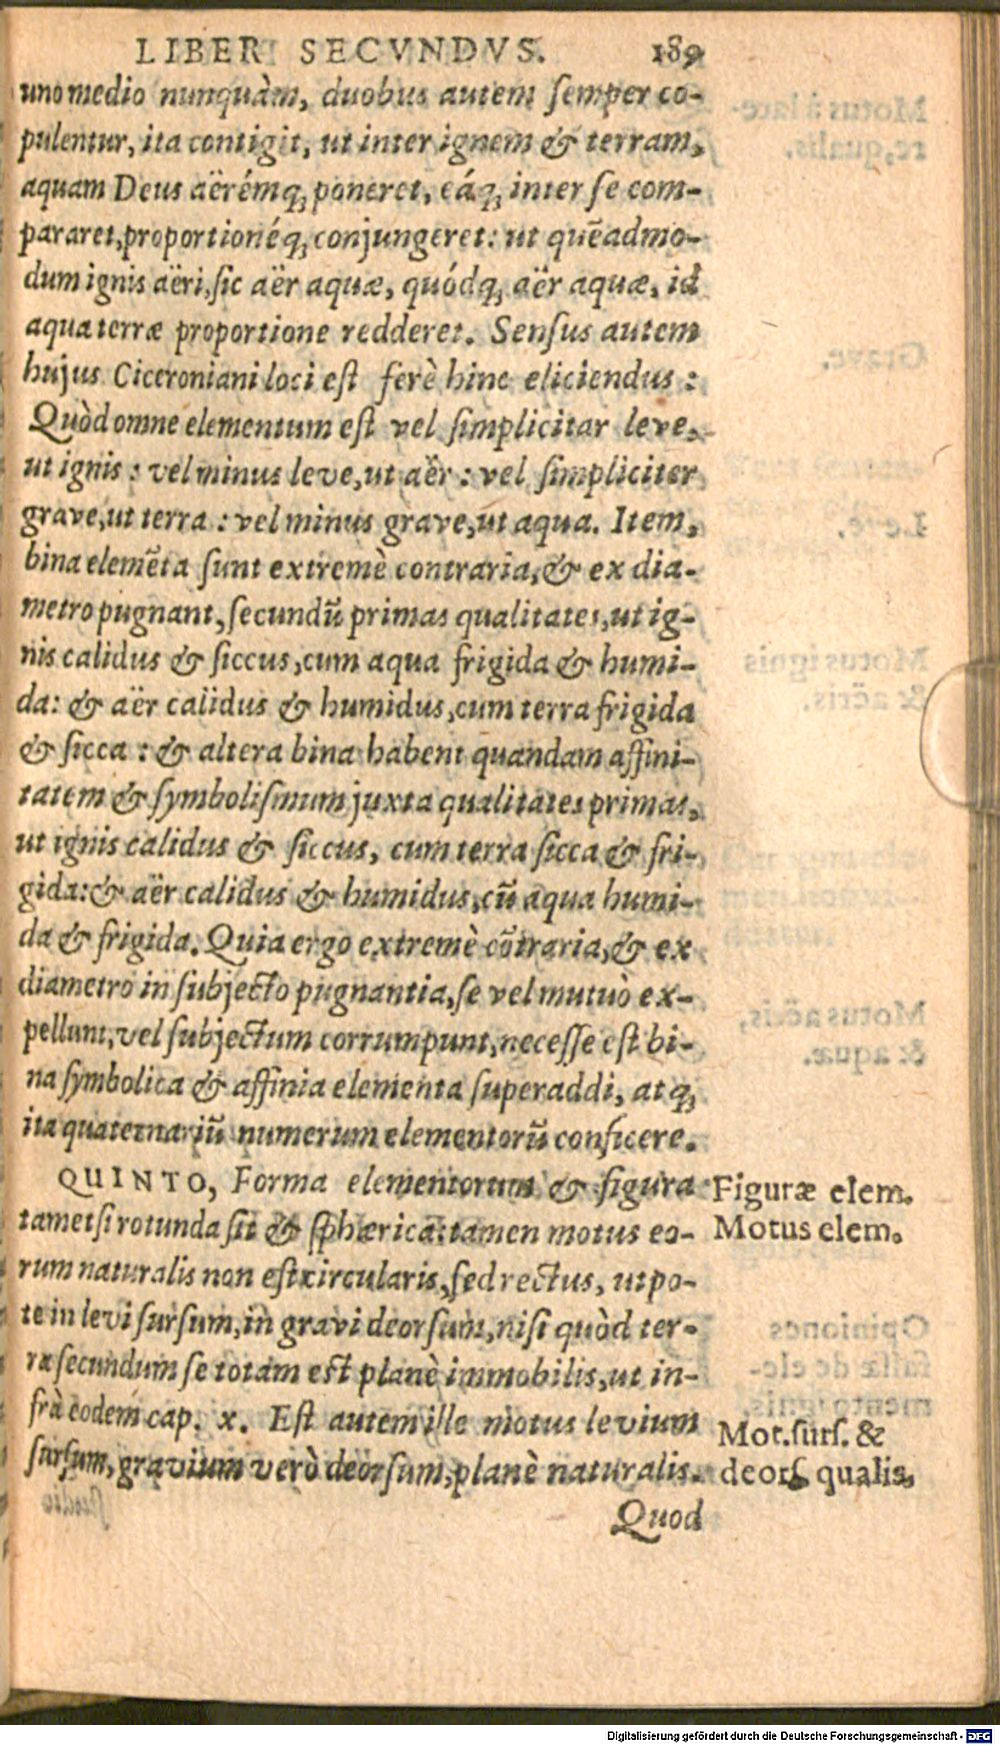 LIBER SECVNDVS. 189
uno medio nunquàm, duobus autem ſemper co-
pulentur, ita contigit, ut inter ignem & terram,
aquam Deus aërémq́; poneret, eáq́; inter ſe com-
pararet, proportionéq́; conjungeret: ut quẽadmo-
dum ignis aëri, ſic aër aquæ, quódq́; aër aquæ, id
aqua terræ proportione redderet. Senſus autem
hujus Ciceroniani loci eſt ferè hinc eliciendus:
Quòd omne elementum eſt vel ſimplicitar leve,
ut ignis: vel minus leve, ut aër: vel ſimpliciter
grave, ut terra: vel minus grave, ut aqua. Item,
bina elemẽta ſunt extremè contraria, & ex dia-
metro pugnant, ſecundũ primas qualitates, ut ig-
nis calidus & ſiccus, cum aqua frigida & humi-
da: & aër calidus & humidus, cum terra frigida
& ſicca: & altera bina habent quandam affini-
tatem & ſymboliſmum juxta qualitates primas,
ut ignis calidus & ſiccus, cum terra ſicca & fri-
gida: & aër calidus & humidus, cũ aqua humi-
da & frigida. Quia ergo extremè cõtraria, & ex
diametro in ſubjecto pugnantia, ſe vel mutuò ex-
pellunt, vel ſubjectum corrumpunt, neceſſe eſt bi-
na ſymbolica & affinia elementa ſuperaddi, atq́;
ita quaternariũ numerum elementorũ conficere.
QUINTO, Forma elementorum & figura
tametſi rotunda ſit & ſphærica: tamen motus eo-
rum naturalis non eſt circularis, ſed rectus, utpo-
te in levi ſurſum, in gravi deorſum, niſi quòd ter-
ra ſecundum ſe totam eſt planè immobilis, ut in-
frà eodem cap. x. Eſt autem ille motus levium
ſurſum, gravium verò deorſum, planè naturalis.
Quod
Figuræ elem.
Motus elem.
Mot. ſurſ. &
deorſ qualis.
Digitalisierung gefördert durch die Deutsche Forschungsgemeinschaft - DFG